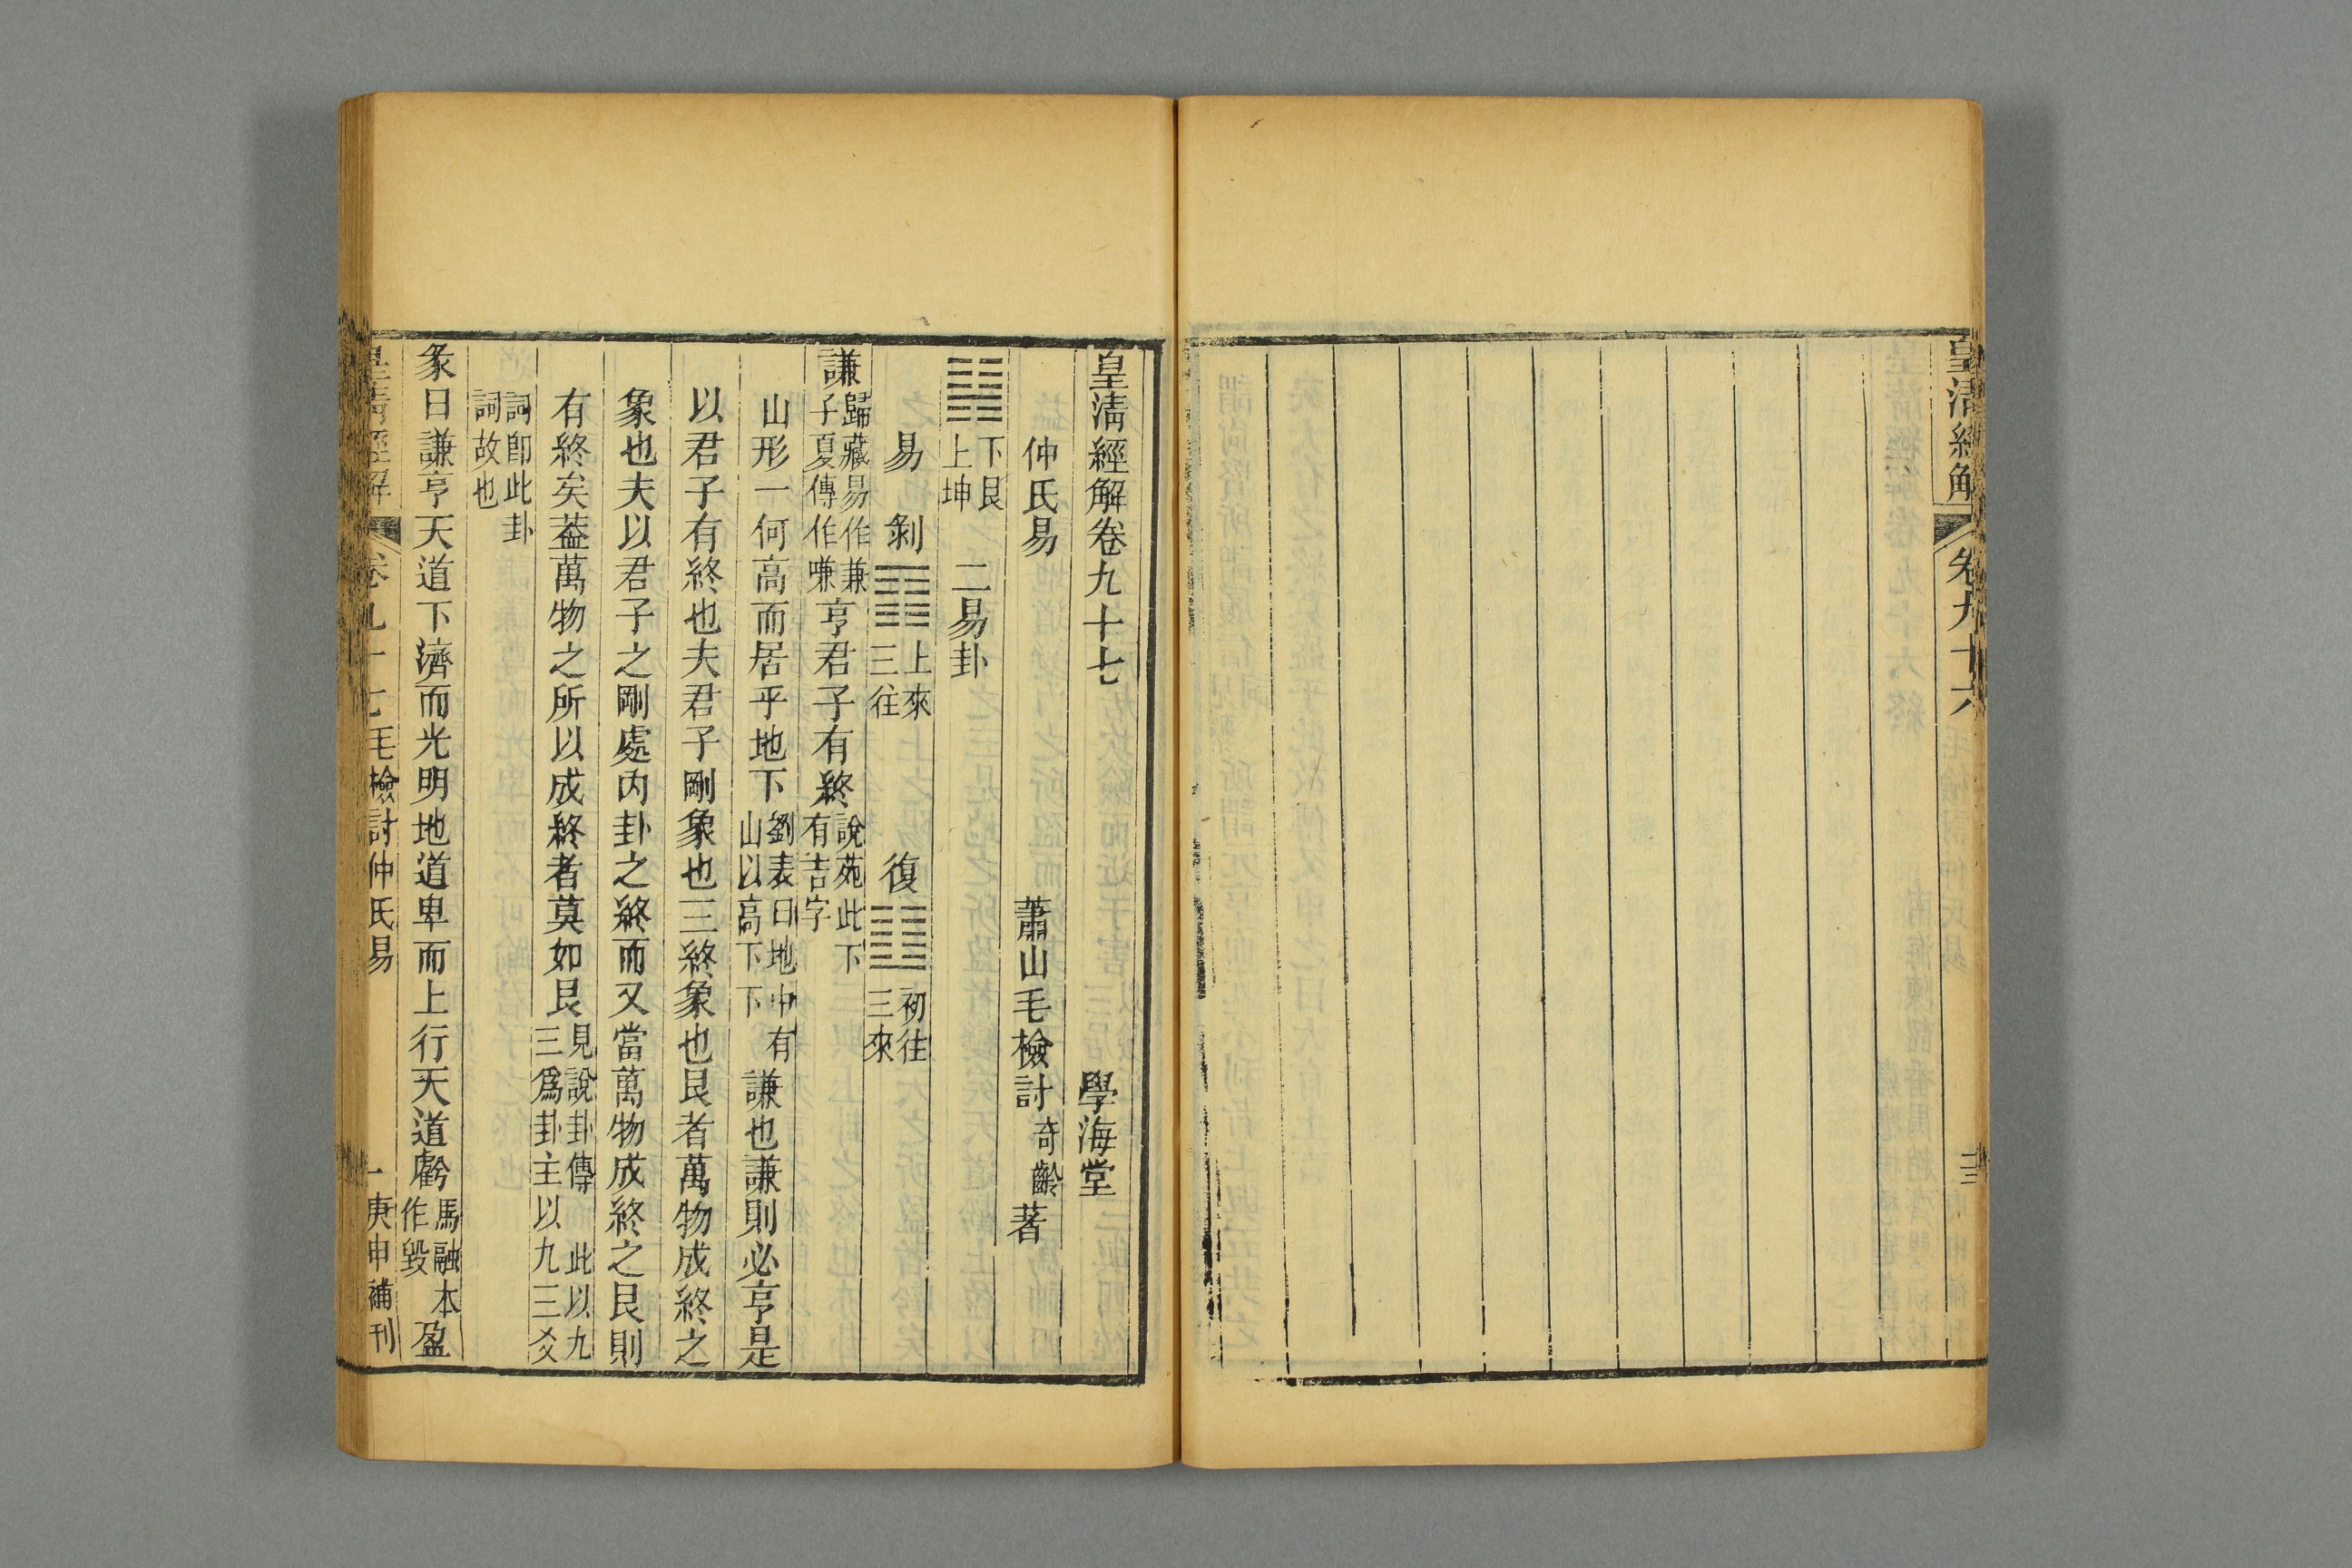 皇清經解 卷九十六
皇清經解卷九十七 學海堂
仲氏易 蕭山毛檢討奇齡著
䷎下艮上坤 二易卦
易 剝䷖上來三往 復䷗初往三來
謙歸藏易作兼子夏傳作嗛亨君子有終說苑此下有吉字
山形一何高而居乎地下劉表曰地中有山以高下下謙也謙則必亨是
以君子有終也夫君子剛象也三終象也艮者萬物成終之
象也夫以君子之剛處內卦之終而又當萬物成終之艮則
有終矣葢萬物之所以成終者莫如艮見說卦傳 此以九三爲卦主以九三爻
詞卽此卦詞故也
彖曰謙亨天道下濟而光明地道卑而上行天道虧馬融本作毀盈
皇清經解 卷九十七 毛檢討仲氏易 一 庚申補刊